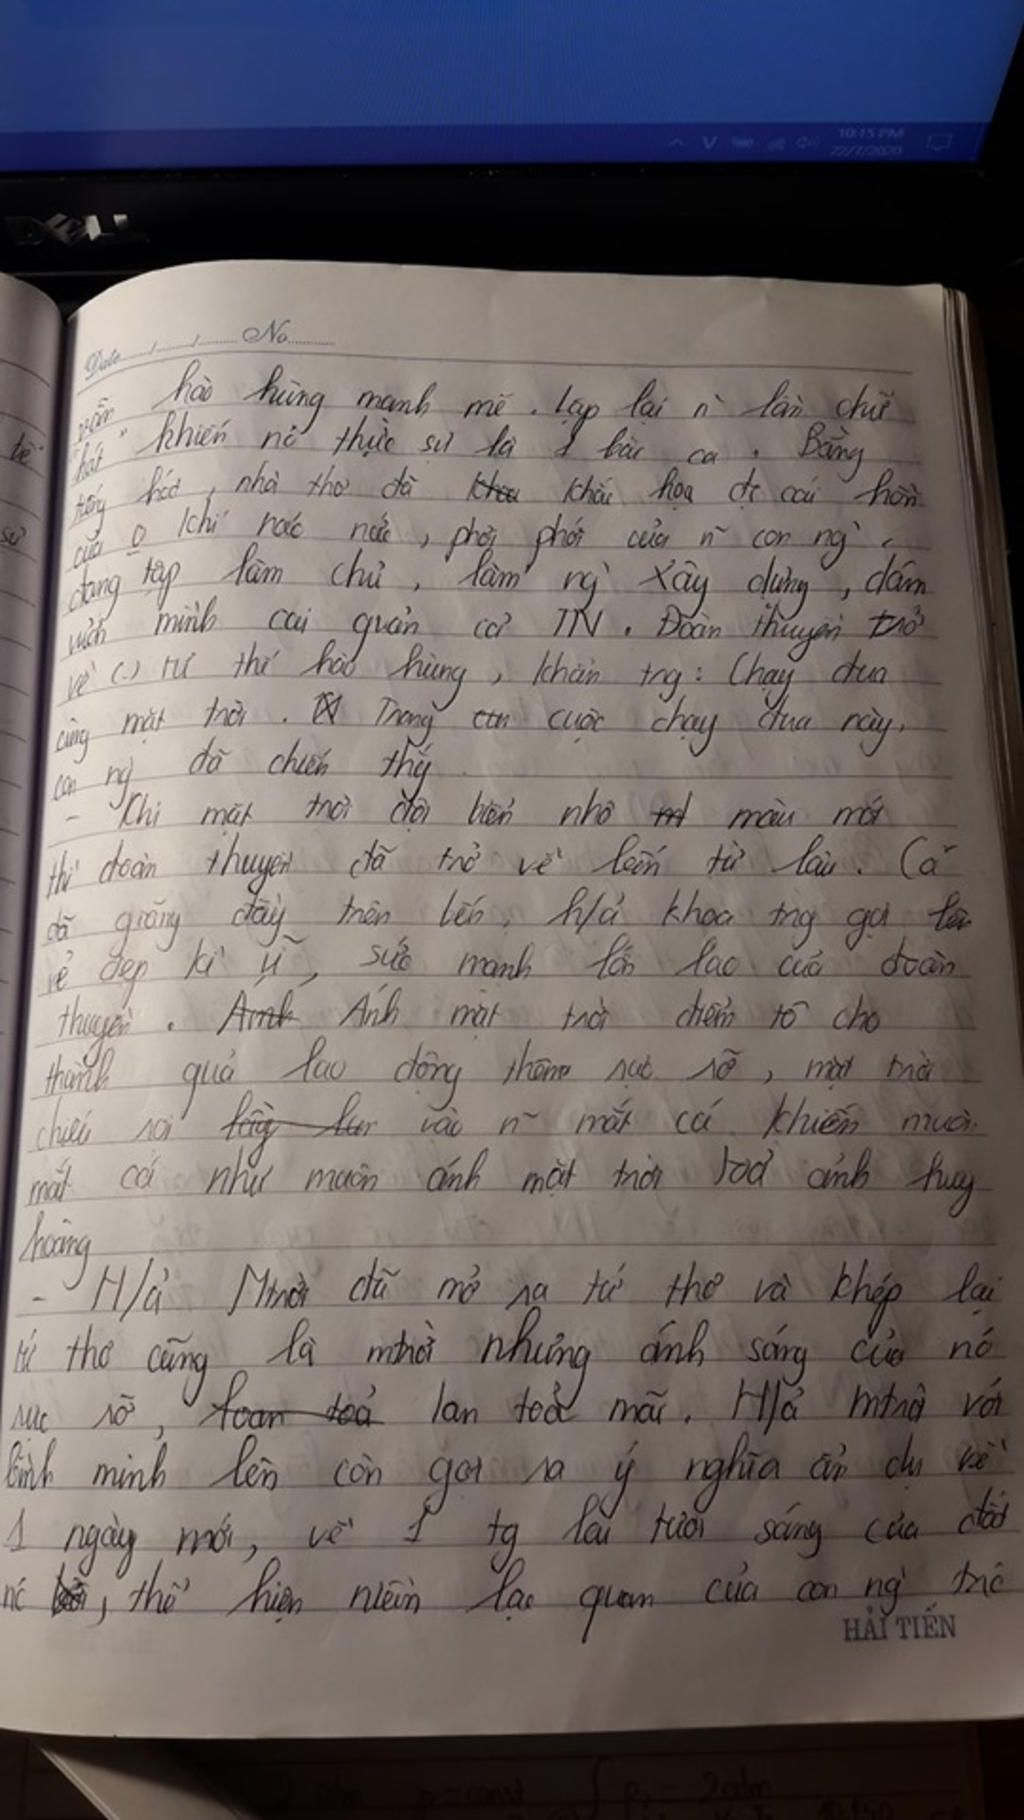 10:15 PM
22/7/2020
DELL
Date...../...../........ No...........
vần hào hùng mạnh mẽ. lặp lại n` lần chữ
"hát" khiến nó thực sự là 1 bài ca. Bằng
tiếng hát, nhà thơ đã khắc hoạ đc cái hồn
của 0 khí nức, phơi phới của n~ con ng`
đang tập làm chủ, làm ng` xây dựng, dám
mình cai quản cả TN. Đoàn thuyền trở
về (.) tư thế hào hùng, khẩn trg: Chạy đua
cùng mặt trời. Trong cuộc chạy đua này,
con ng` đã chiến thắg
- Khi mặt trời đội biển nhô màu mới
thì đoàn thuyền đã trở về bến từ lâu. Cá
đã giăng đầy trên bến, h/ả khoa trg gợi lên
vẻ đẹp kì vĩ, sức mạnh lớn lao của đoàn
thuyền. Ánh mặt trời điểm tô cho
thành quả lao động thêm rực rỡ, mặt trời
chiếu rọi vào n~ mắt cá khiến muôn
mắt cá như muôn ánh mặt trời toả ánh huy
hoàng
- H/ả Mtrời đã mở ra tứ thơ và khép lại
tứ thơ cũng là mtrời nhưng ánh sáng của nó
rực rỡ, lan toả mãi. H/ả mtrời với
bình minh lên còn gợi ra ý nghĩa ẩn dụ về
1 ngày mới, về 1 tg lai tươi sáng của đất
nc, thể hiện niềm lạc quan của con ng` trc
HẢI TIẾN
về
sử
p = const